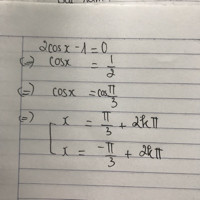 2cosx - 1 = 0
(=) cosx = 1/2
(=) cosx = cos π/3
(=) [ x = π/3 + 2kπ
x = -π/3 + 2kπ